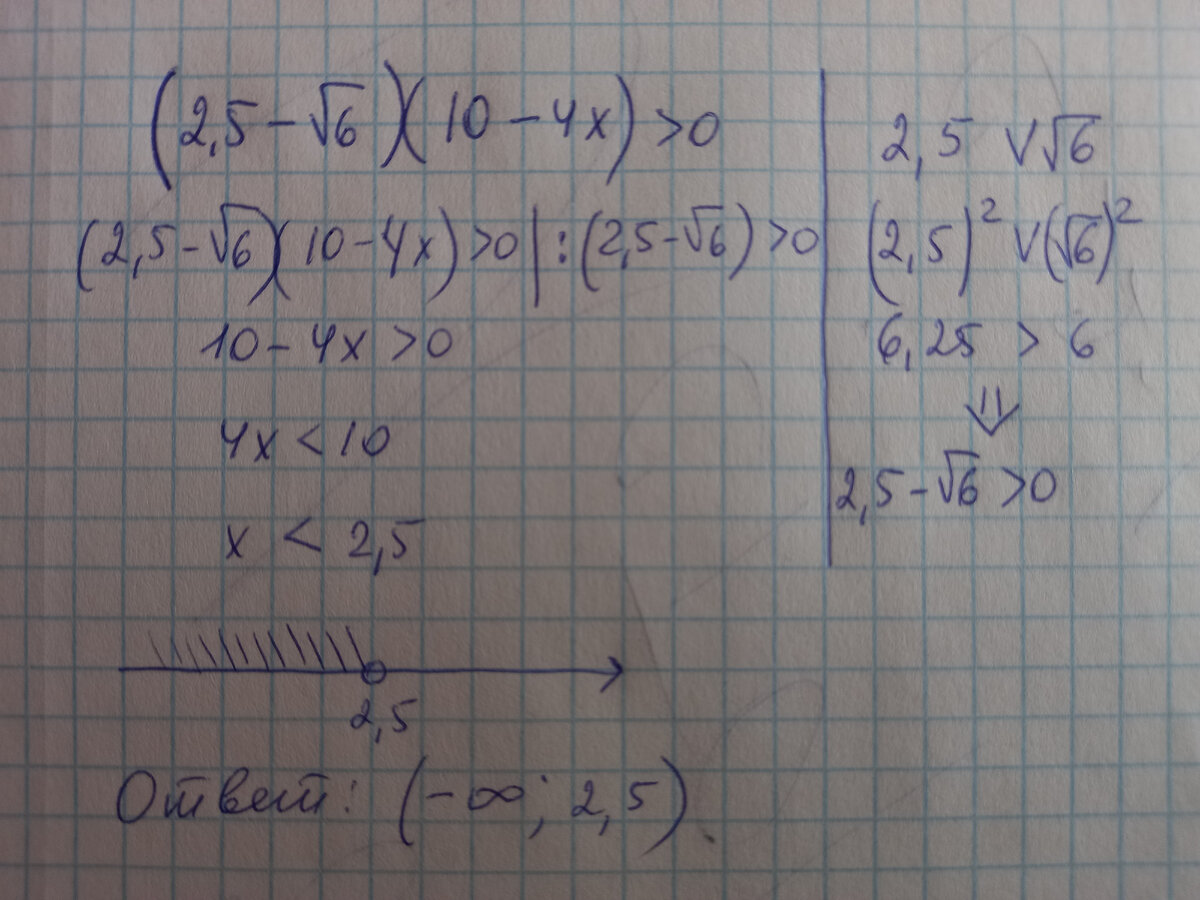 (2,5-√6)(10-4x)>0
(2,5-√6)(10-4x)>0 | :(2,5-√6)>0
10-4x>0
4x<10
x < 2,5
2,5
Ответ: (-∞; 2,5).
2,5 V √6
(2,5)² V (√6)²
6,25 > 6
⇓
2,5-√6>0